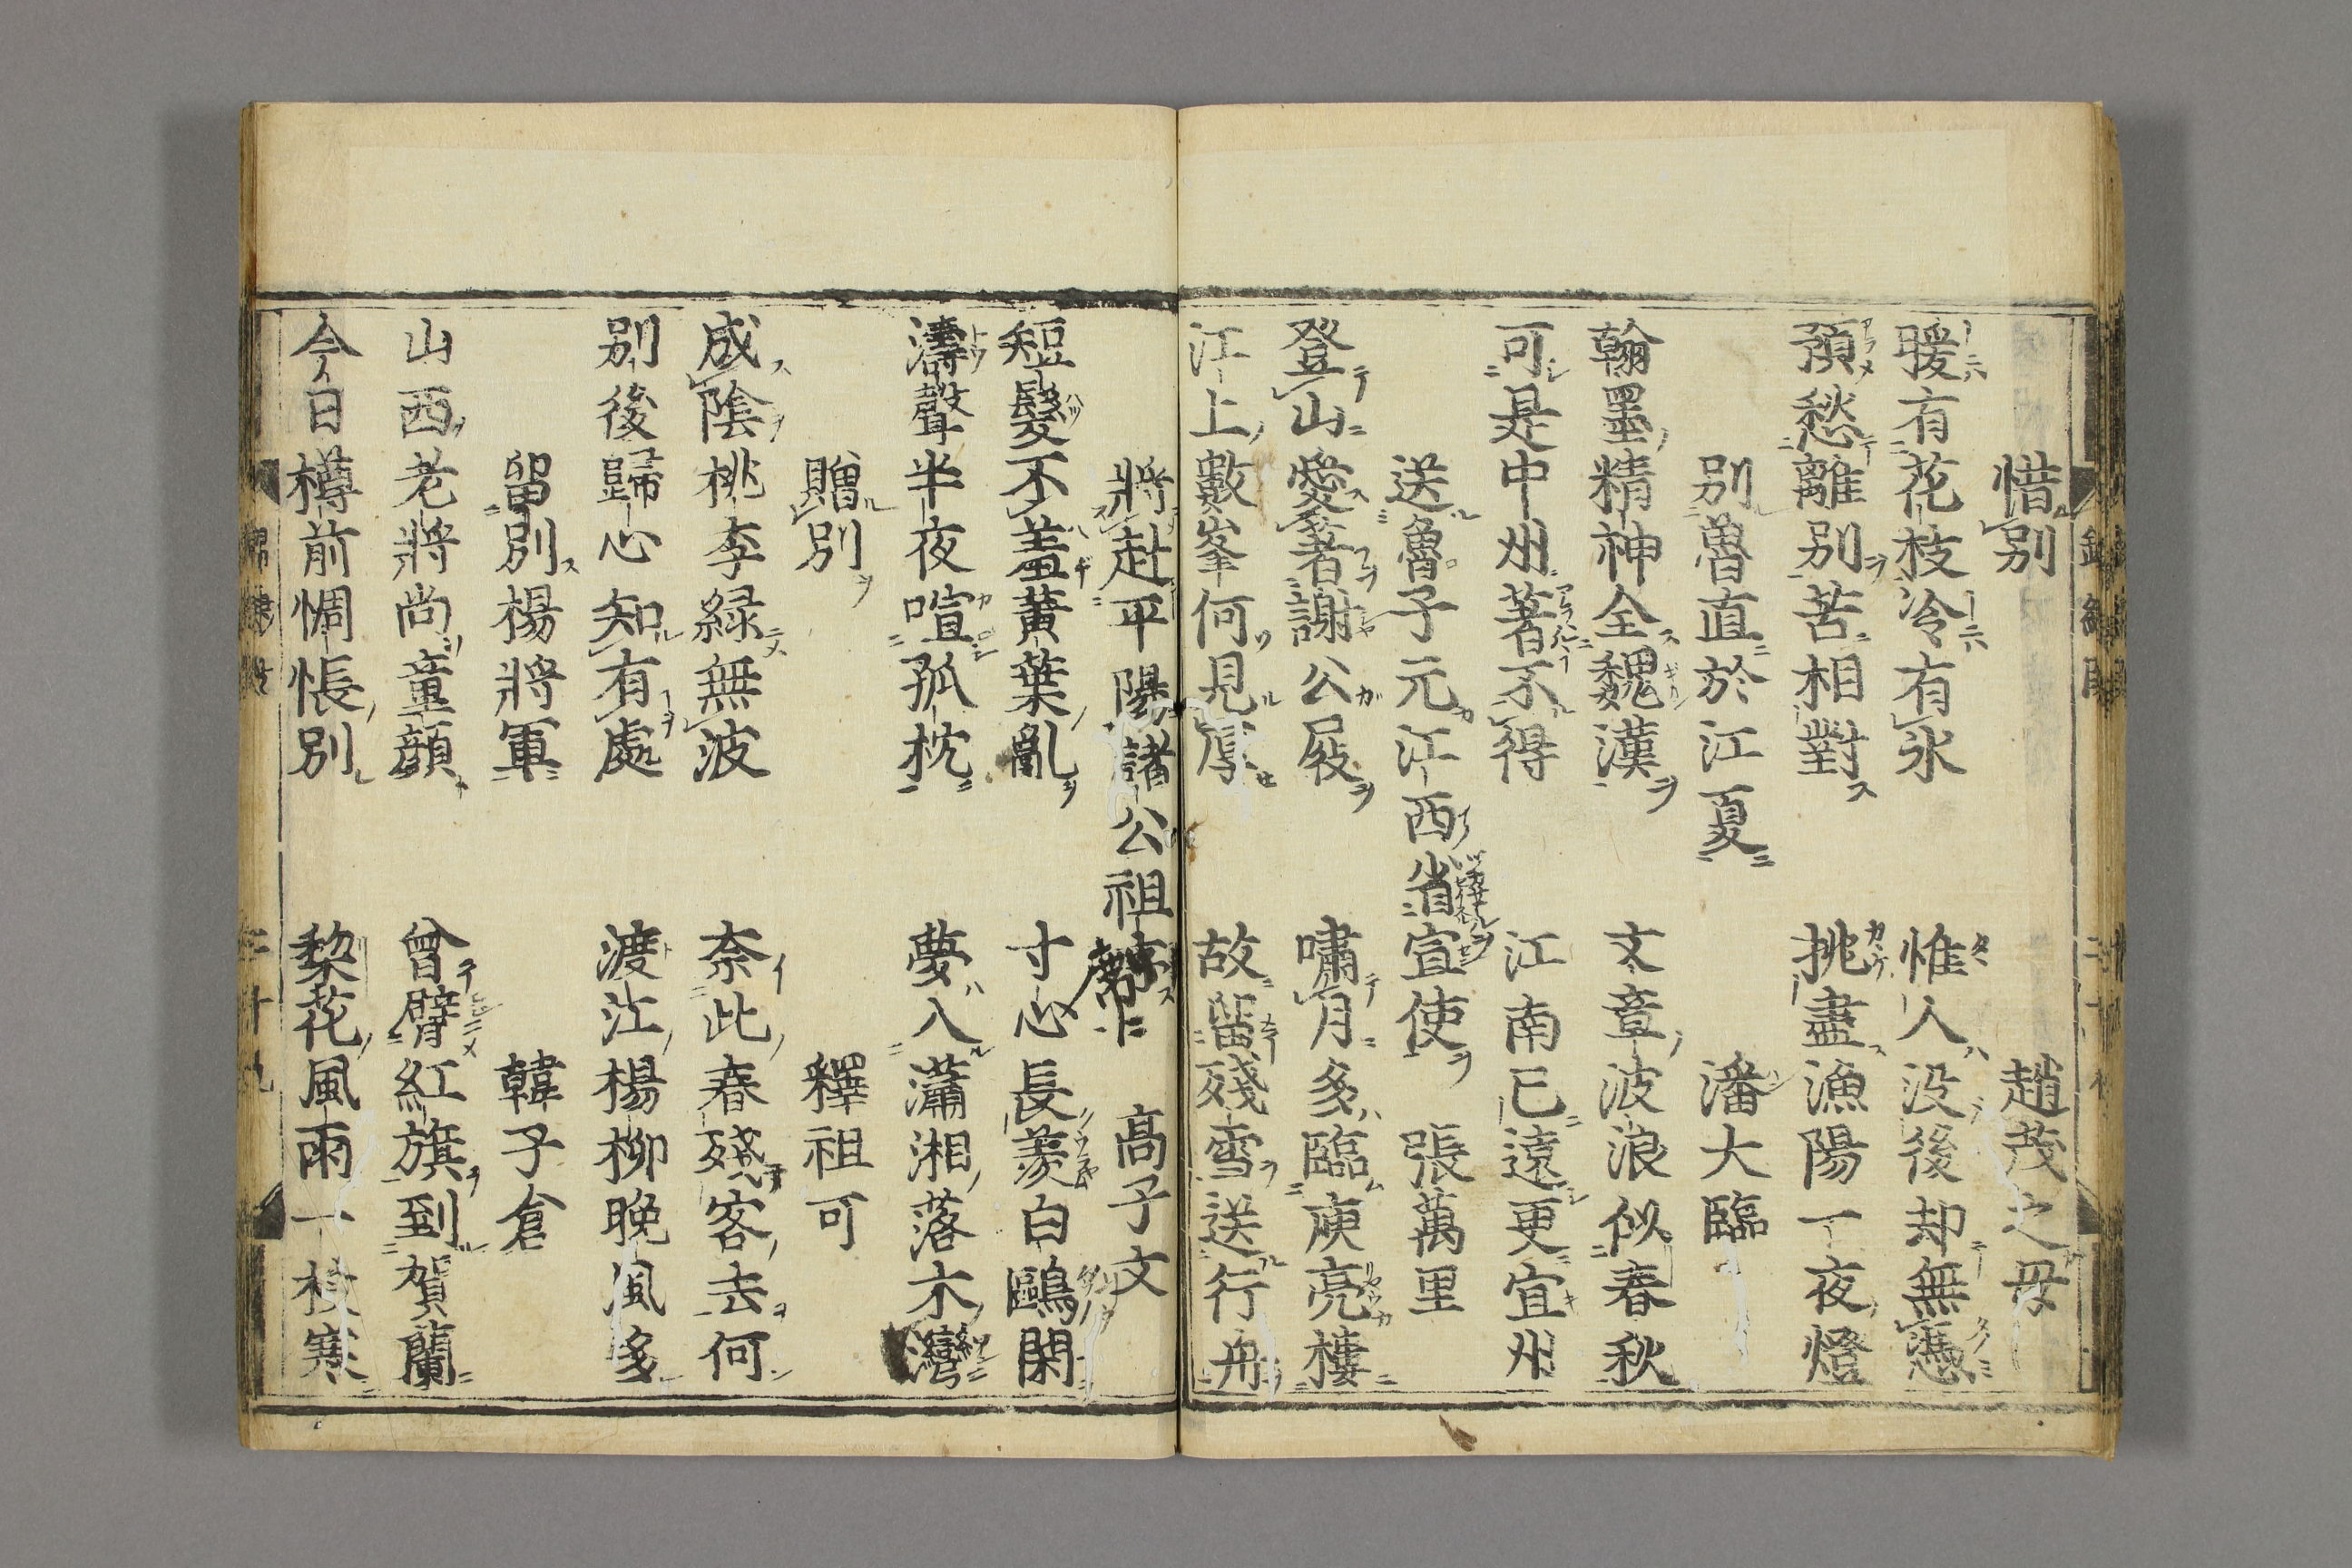 惜別　趙茂之母
暖有花枝冷有氷　惟人没後却無憑
預愁離別苦相對　挑盡漁陽一夜燈
別魯直於江夏　潘大臨
翰墨精神全魏漢　文章波浪似春秋
可是中州著不得　江南已遠更宜州
送魯子元江西省宣使　張萬里
登山愛著謝公屐　嘯月多臨庾亮樓
江上數峯何見厚　故留殘雪送行舟
將赴平陽諸公祖席　高子文
短髮不羞黃葉亂　寸心長羨白鷗閑
濤聲半夜喧孤枕　夢入瀟湘落木灣
贈別　釋祖可
成陰桃李緑無波　奈此春殘客去何
別後歸心知有處　渡江楊柳晚風多
留別楊將軍　韓子倉
山西老將尚童顏　曾臂紅旗到賀蘭
今日樽前惆悵別　梨花風雨一枝寒
二十九